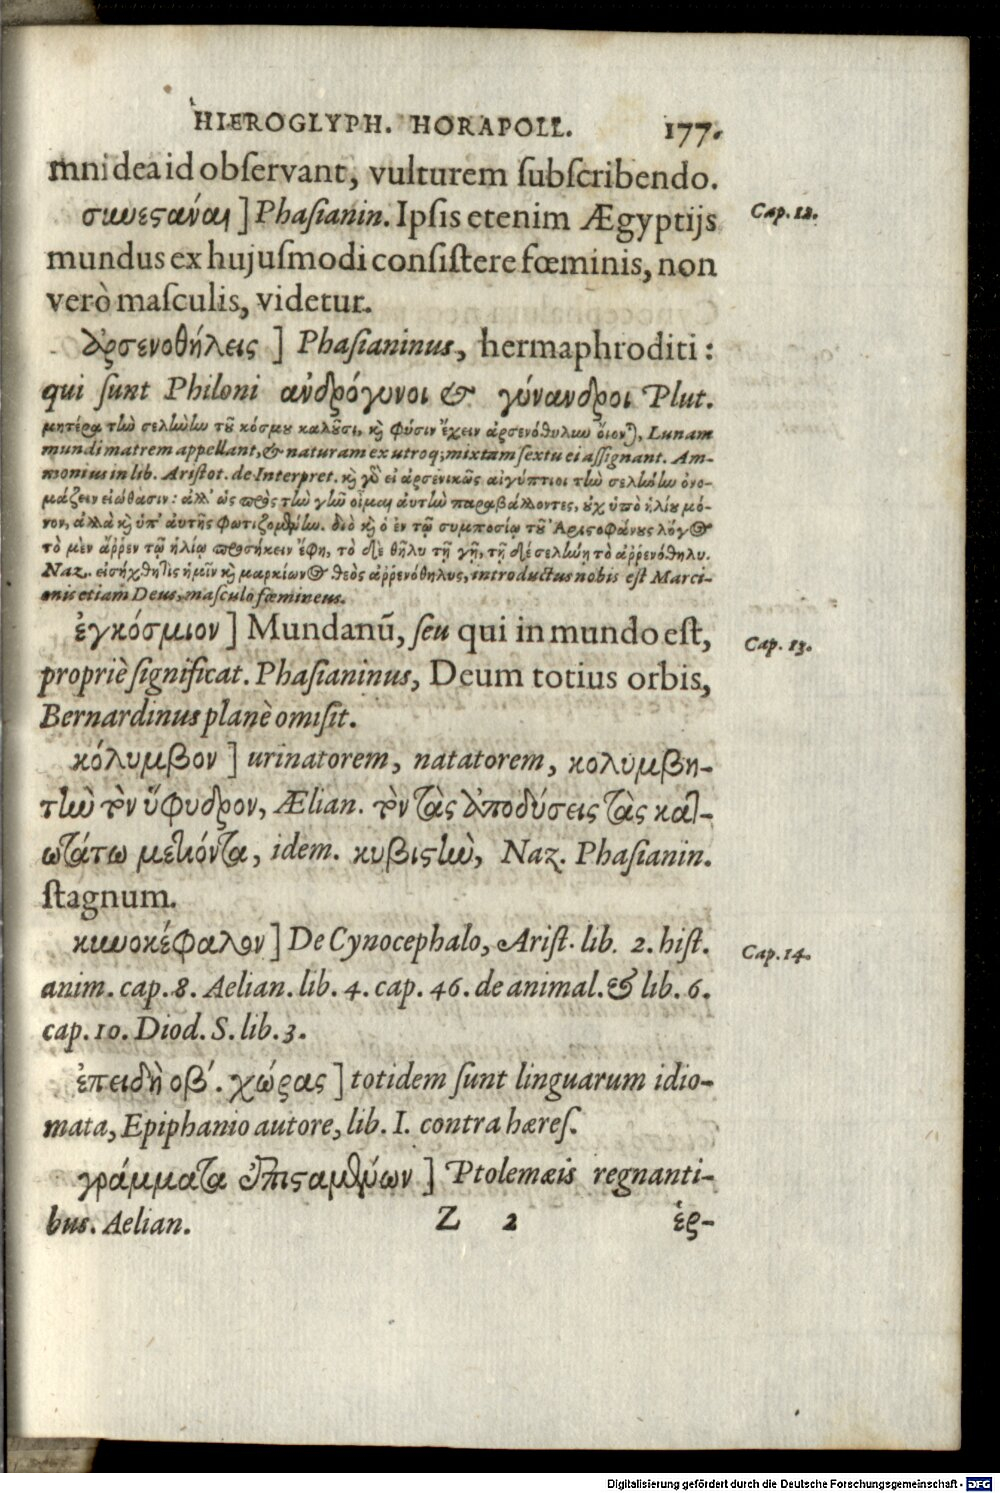 HIEROGLYPH. HORAPOLL. 177.
mni dea id obſervant, vulturem ſubſcribendo.
συνεστάναι] Phaſianin. Ipſis etenim Ægyptijs
Cap. 12.
mundus ex hujuſmodi conſiſtere fœminis, non
verò maſculis, videtur.
Ἀρσενοθήλεις ] Phaſianinus, hermaphroditi:
qui ſunt Philoni ἀνδρόγυνοι & γύνανδροι Plut.
μητέρα τὴν σελήνην τοῦ κόσμου καλοῦσι, καὶ φύσιν ἔχειν ἀρσενόθυλιω οἴον), Lunam
mundi matrem appellant, & naturam ex utroq; mixtam ſextu ei aſſignant. Am-
monius in lib. Ariſtot. de Interpret. καὶ γὸ εἰ ἀρσενικῶς αἰγύπτιοι τὴν σελήνην ὀνο-
μάζειν εἰώθασιν: ἀλλ' ὡς πρὸς τὴν γῆν οἶμαι αὐτὴν παραβάλλοντες, οὐχ ὑπὸ ἡλίου μό-
νον, ἀλλὰ καὶ ὑπ' αὐτῆς φωτιζομένην. διὸ καὶ ὁ ἐν τῷ συμποσίῳ τοῦ Ἀριστοφάνους λόγος
τὸ μὲν ἄῤῥεν τῷ ἡλίῳ προσήκειν ἔφη, τὸ δὲ θῆλυ τῇ γῇ, τῇ δὲ σελήνῃ τὸ ἀῤῥενόθηλυ.
Naz. εἰσήχθη τις ἡμῖν καὶ μαρκίωνος θεὸς ἀῤῥενόθηλυς, introductus nobis eſt Marci-
onis etiam Deus, maſculo fœmineus.
ἐγκόσμιον] Mundanū, ſeu qui in mundo eſt,
Cap. 13.
propriè ſignificat. Phaſianinus, Deum totius orbis,
Bernardinus planè omiſit.
κόλυμβον ] urinatorem, natatorem, κολυμβη-
τὴν τὸν ὕφυδρον, Ælian. τὸν τὰς ἀποδύσεις τὰς κατ-
ωτάτω μετιόντα, idem. κυβιστὴν, Naz. Phaſianin.
ſtagnum.
κυνοκέφαλον] De Cynocephalo, Ariſt. lib. 2. hiſt.
Cap. 14.
anim. cap. 8. Aelian. lib. 4. cap. 46. de animal. & lib. 6.
cap. 10. Diod. S. lib. 3.
ἐπειδὴ οβ´. χώρας ] totidem ſunt linguarum idio-
mata, Epiphanio autore, lib. I. contra hæreſ.
γράμματα ἐπισταμένων ] Ptolemæis regnanti-
bus. Aelian.
Z 2
ἑρ-
Digitalisierung gefördert durch die Deutsche Forschungsgemeinschaft - DFG